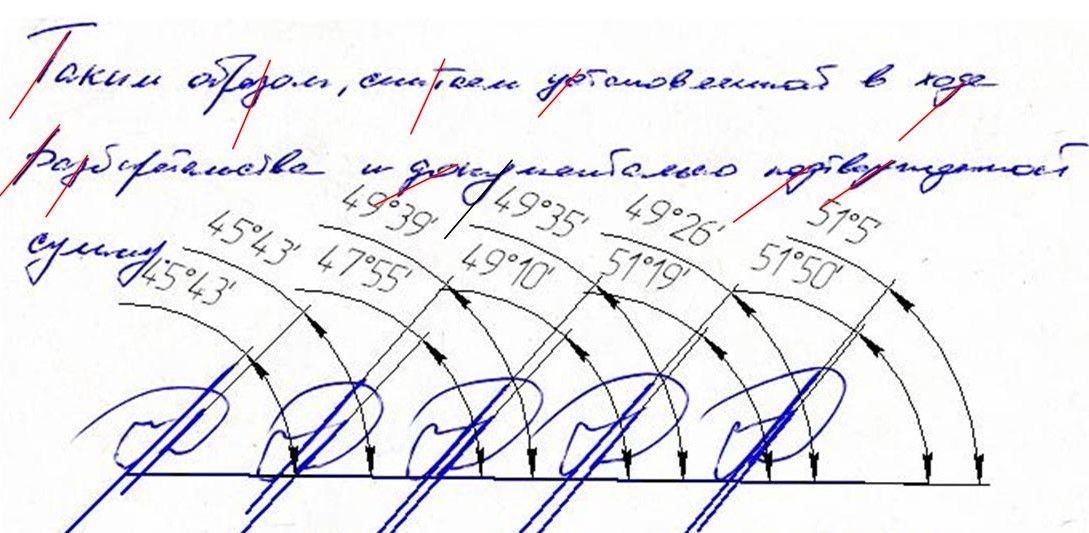 Таким образом, считаем установленной в ходе
разбирательства и документально подтвержденной
сумму
49°39' 49°35' 49°26' 51°5'
45°43' 47°55' 49°10' 51°19' 51°50'
45°43'